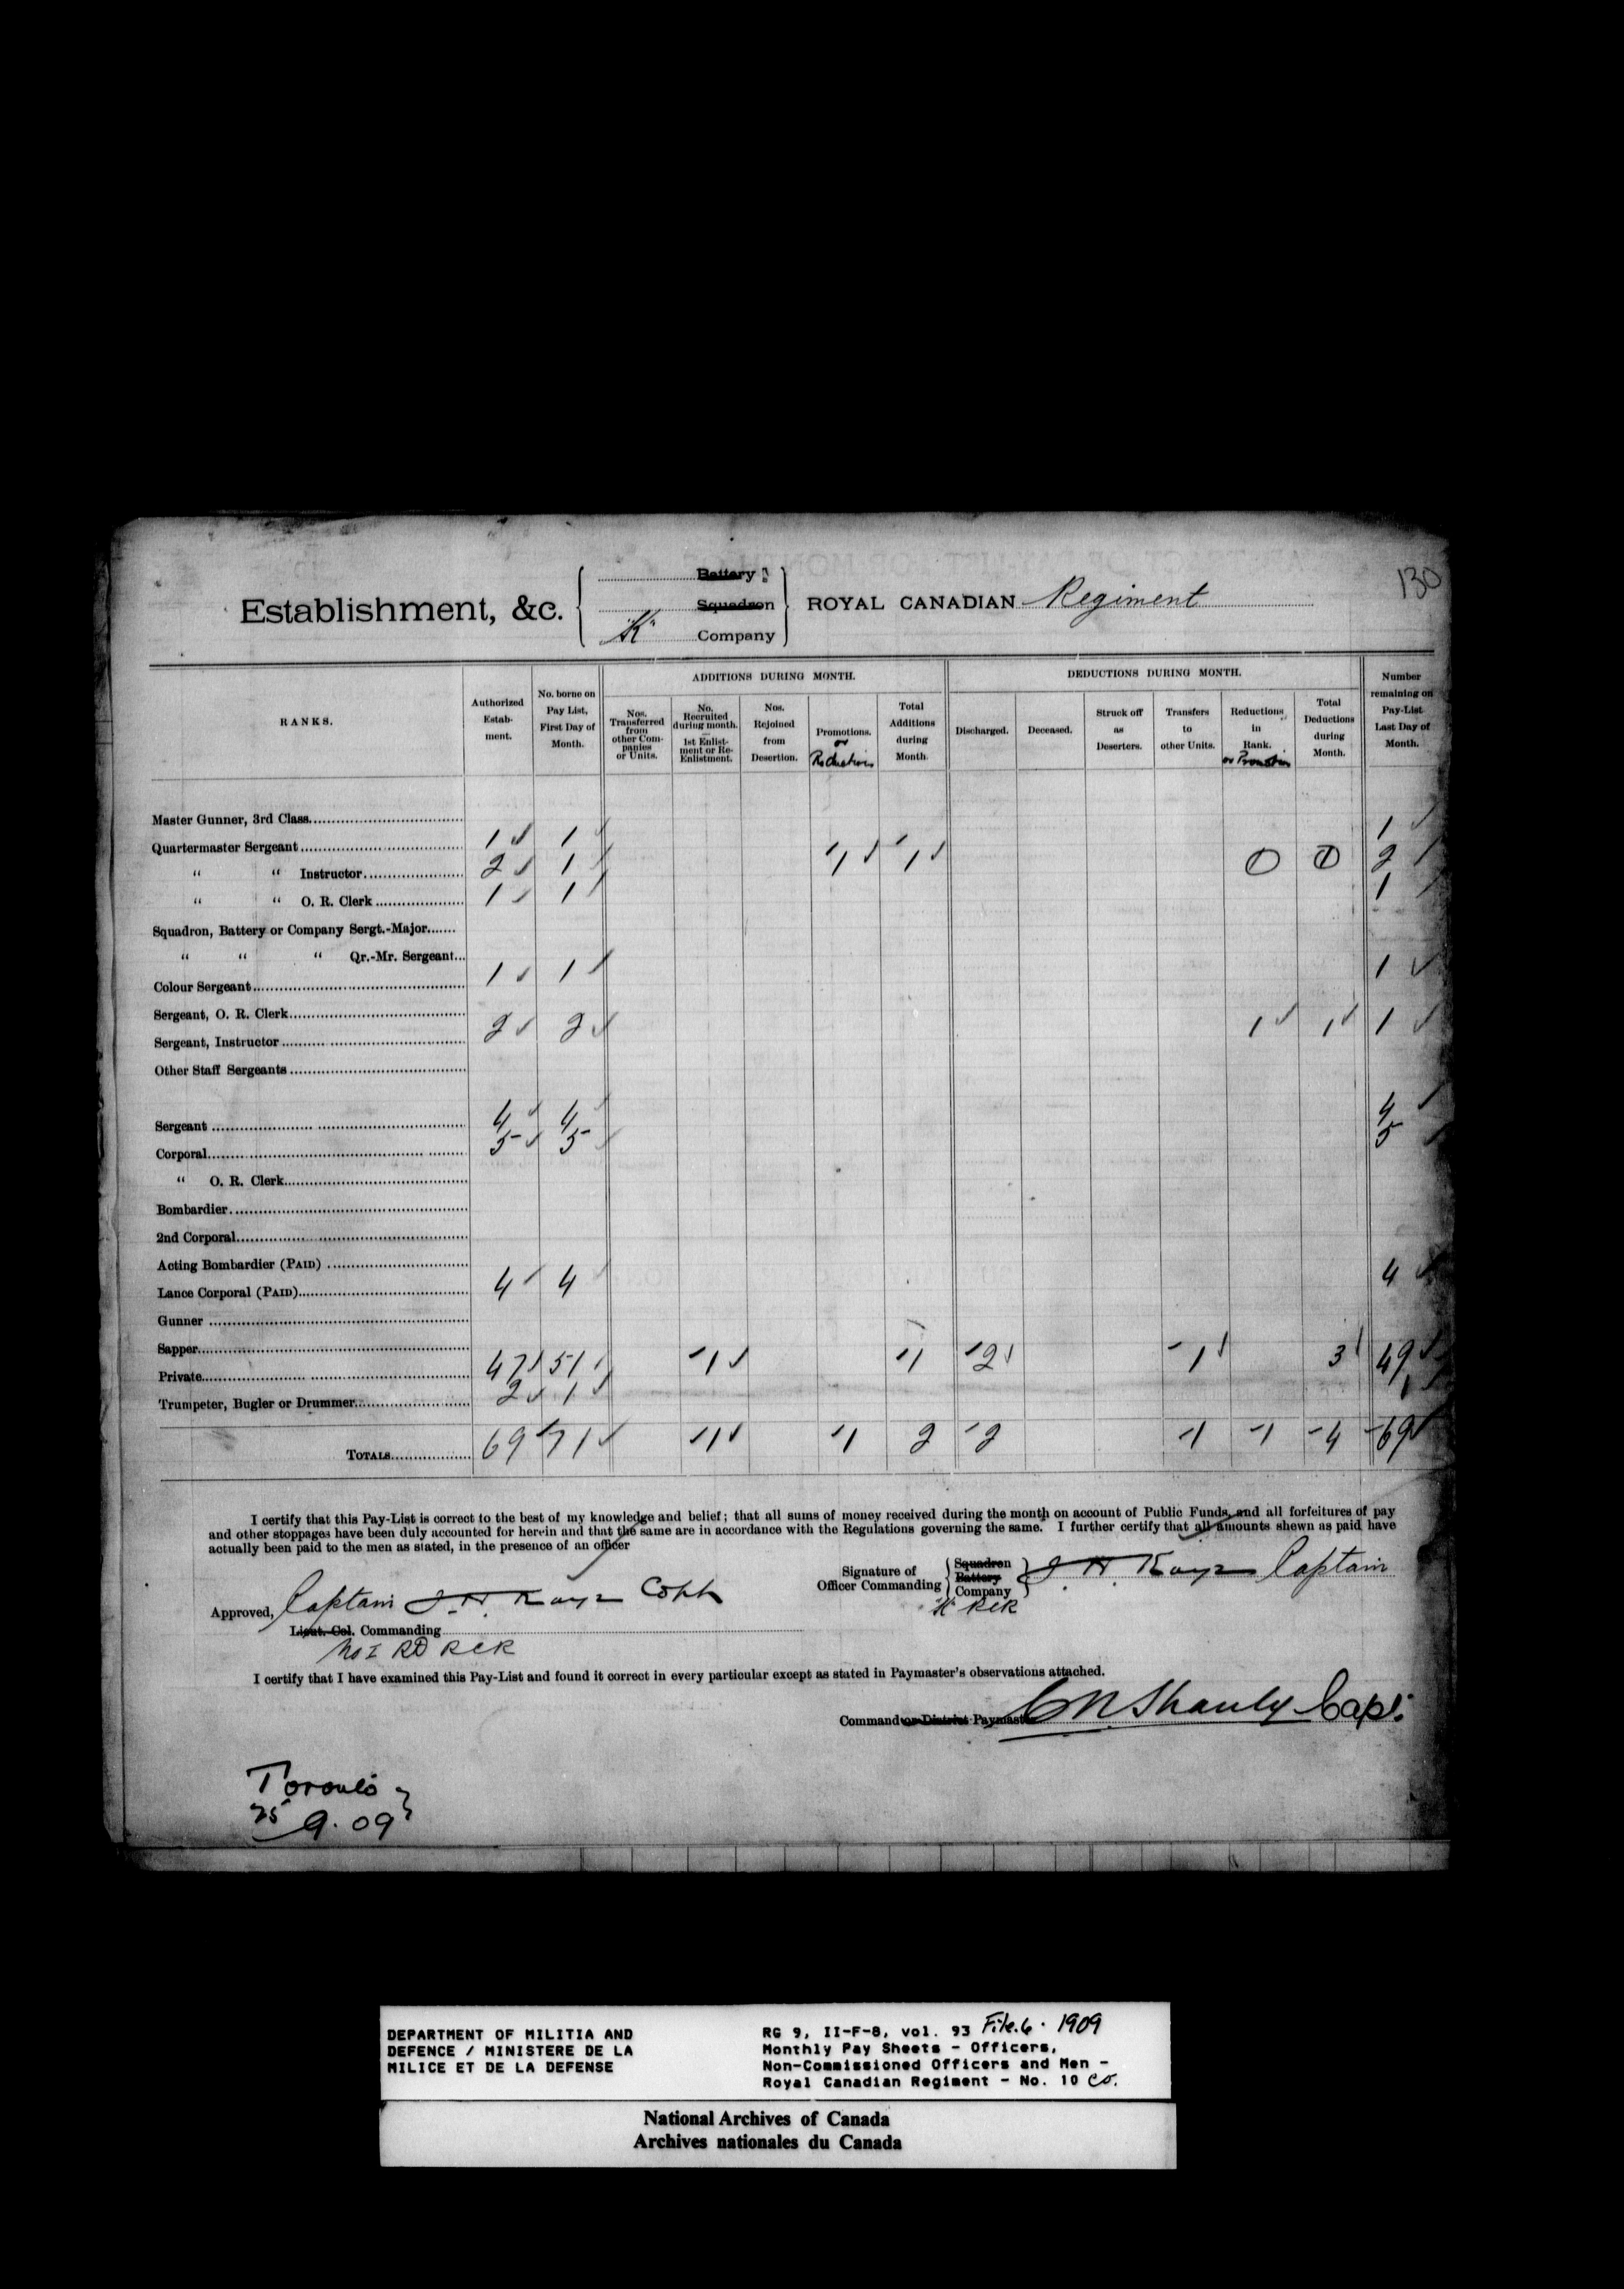 130
Establishment, &c. { Battery
Squadron
"K" Company } ROYAL CANADIAN Regiment
RANKS. | Authorized Establishment. | No. borne on Pay List, First Day of Month. | ADDITIONS DURING MONTH. | DEDUCTIONS DURING MONTH. | Number remaining on Pay-List Last Day of Month.
Nos. Transferred from other Companies or Units. | No. Recruited during month. — 1st Enlistment or Re-Enlistment. | Nos. Rejoined from Desertion. | Promotions. or Reductions | Total Additions during Month. | Discharged. | Deceased. | Struck off as Deserters. | Transfers to other Units. | Reductions in Rank. or Promotion | Total Deductions during Month.
Master Gunner, 3rd Class
Quartermaster Sergeant 1 1 1
" " Instructor 2 1 1 1 0 0 2
" " O. R. Clerk 1 1 1
Squadron, Battery or Company Sergt.-Major
" " " Qr.-Mr. Sergeant
Colour Sergeant 1 1 1
Sergeant, O. R. Clerk
Sergeant, Instructor 2 2 1 1 1
Other Staff Sergeants
Sergeant 4 4 4
Corporal 5 5 5
" O. R. Clerk
Bombardier
2nd Corporal
Acting Bombardier (PAID)
Lance Corporal (PAID) 4 4 4
Gunner
Sapper
Private 47 51 1 1 2 1 3 49
Trumpeter, Bugler or Drummer 2 1 1
TOTALS 69 71 1 1 2 2 1 1 4 69
I certify that this Pay-List is correct to the best of my knowledge and belief; that all sums of money received during the month on account of Public Funds, and all forfeitures of pay
and other stoppages have been duly accounted for herein and that the same are in accordance with the Regulations governing the same. I further certify that all amounts shewn as paid have
actually been paid to the men as stated, in the presence of an officer
Signature of Officer Commanding { Squadron
Battery
Company } J. H. Kaye Captain
"K" RCR
Approved, Captain J. H. Kaye
Lieut.-Col. Commanding
No I RD RCR
I certify that I have examined this Pay-List and found it correct in every particular except as stated in Paymaster's observations attached.
Command or District Paymaster C M Shanly Capt.
Toronto }
25 9. 09
DEPARTMENT OF MILITIA AND
DEFENCE / MINISTERE DE LA
MILICE ET DE LA DEFENSE
RG 9, II-F-8, vol. 93 File.6. 1909
Monthly Pay Sheets - Officers,
Non-Commissioned Officers and Men -
Royal Canadian Regiment - No. 10 Co.
National Archives of Canada
Archives nationales du Canada